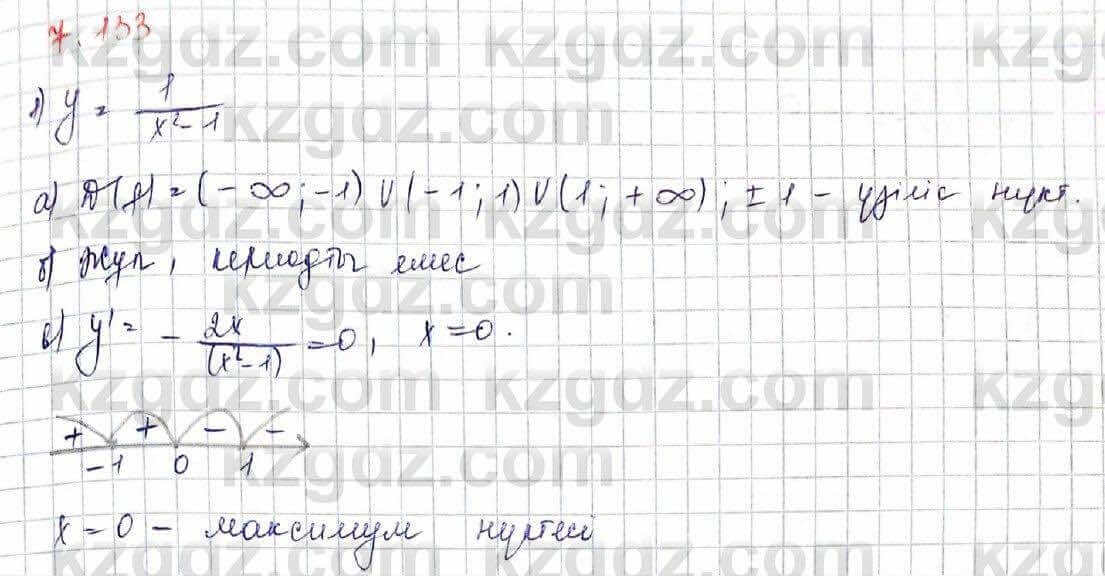 7.133
1) y = 1/(x² - 1)
а) D(f) = (-∞; -1) ∪ (-1; 1) ∪ (1; +∞); ±1 - үзіліс нүкт.
б) Жұп, периодты емес
в) y' = - 2x/(x² - 1) = 0, x = 0.
+ + - -
-1 0 1
x = 0 - максимум нүктесі
kzgdz.com